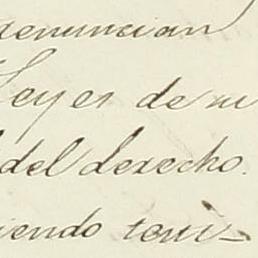 renuncian
Leyes de su
del derecho.
iendo teni-